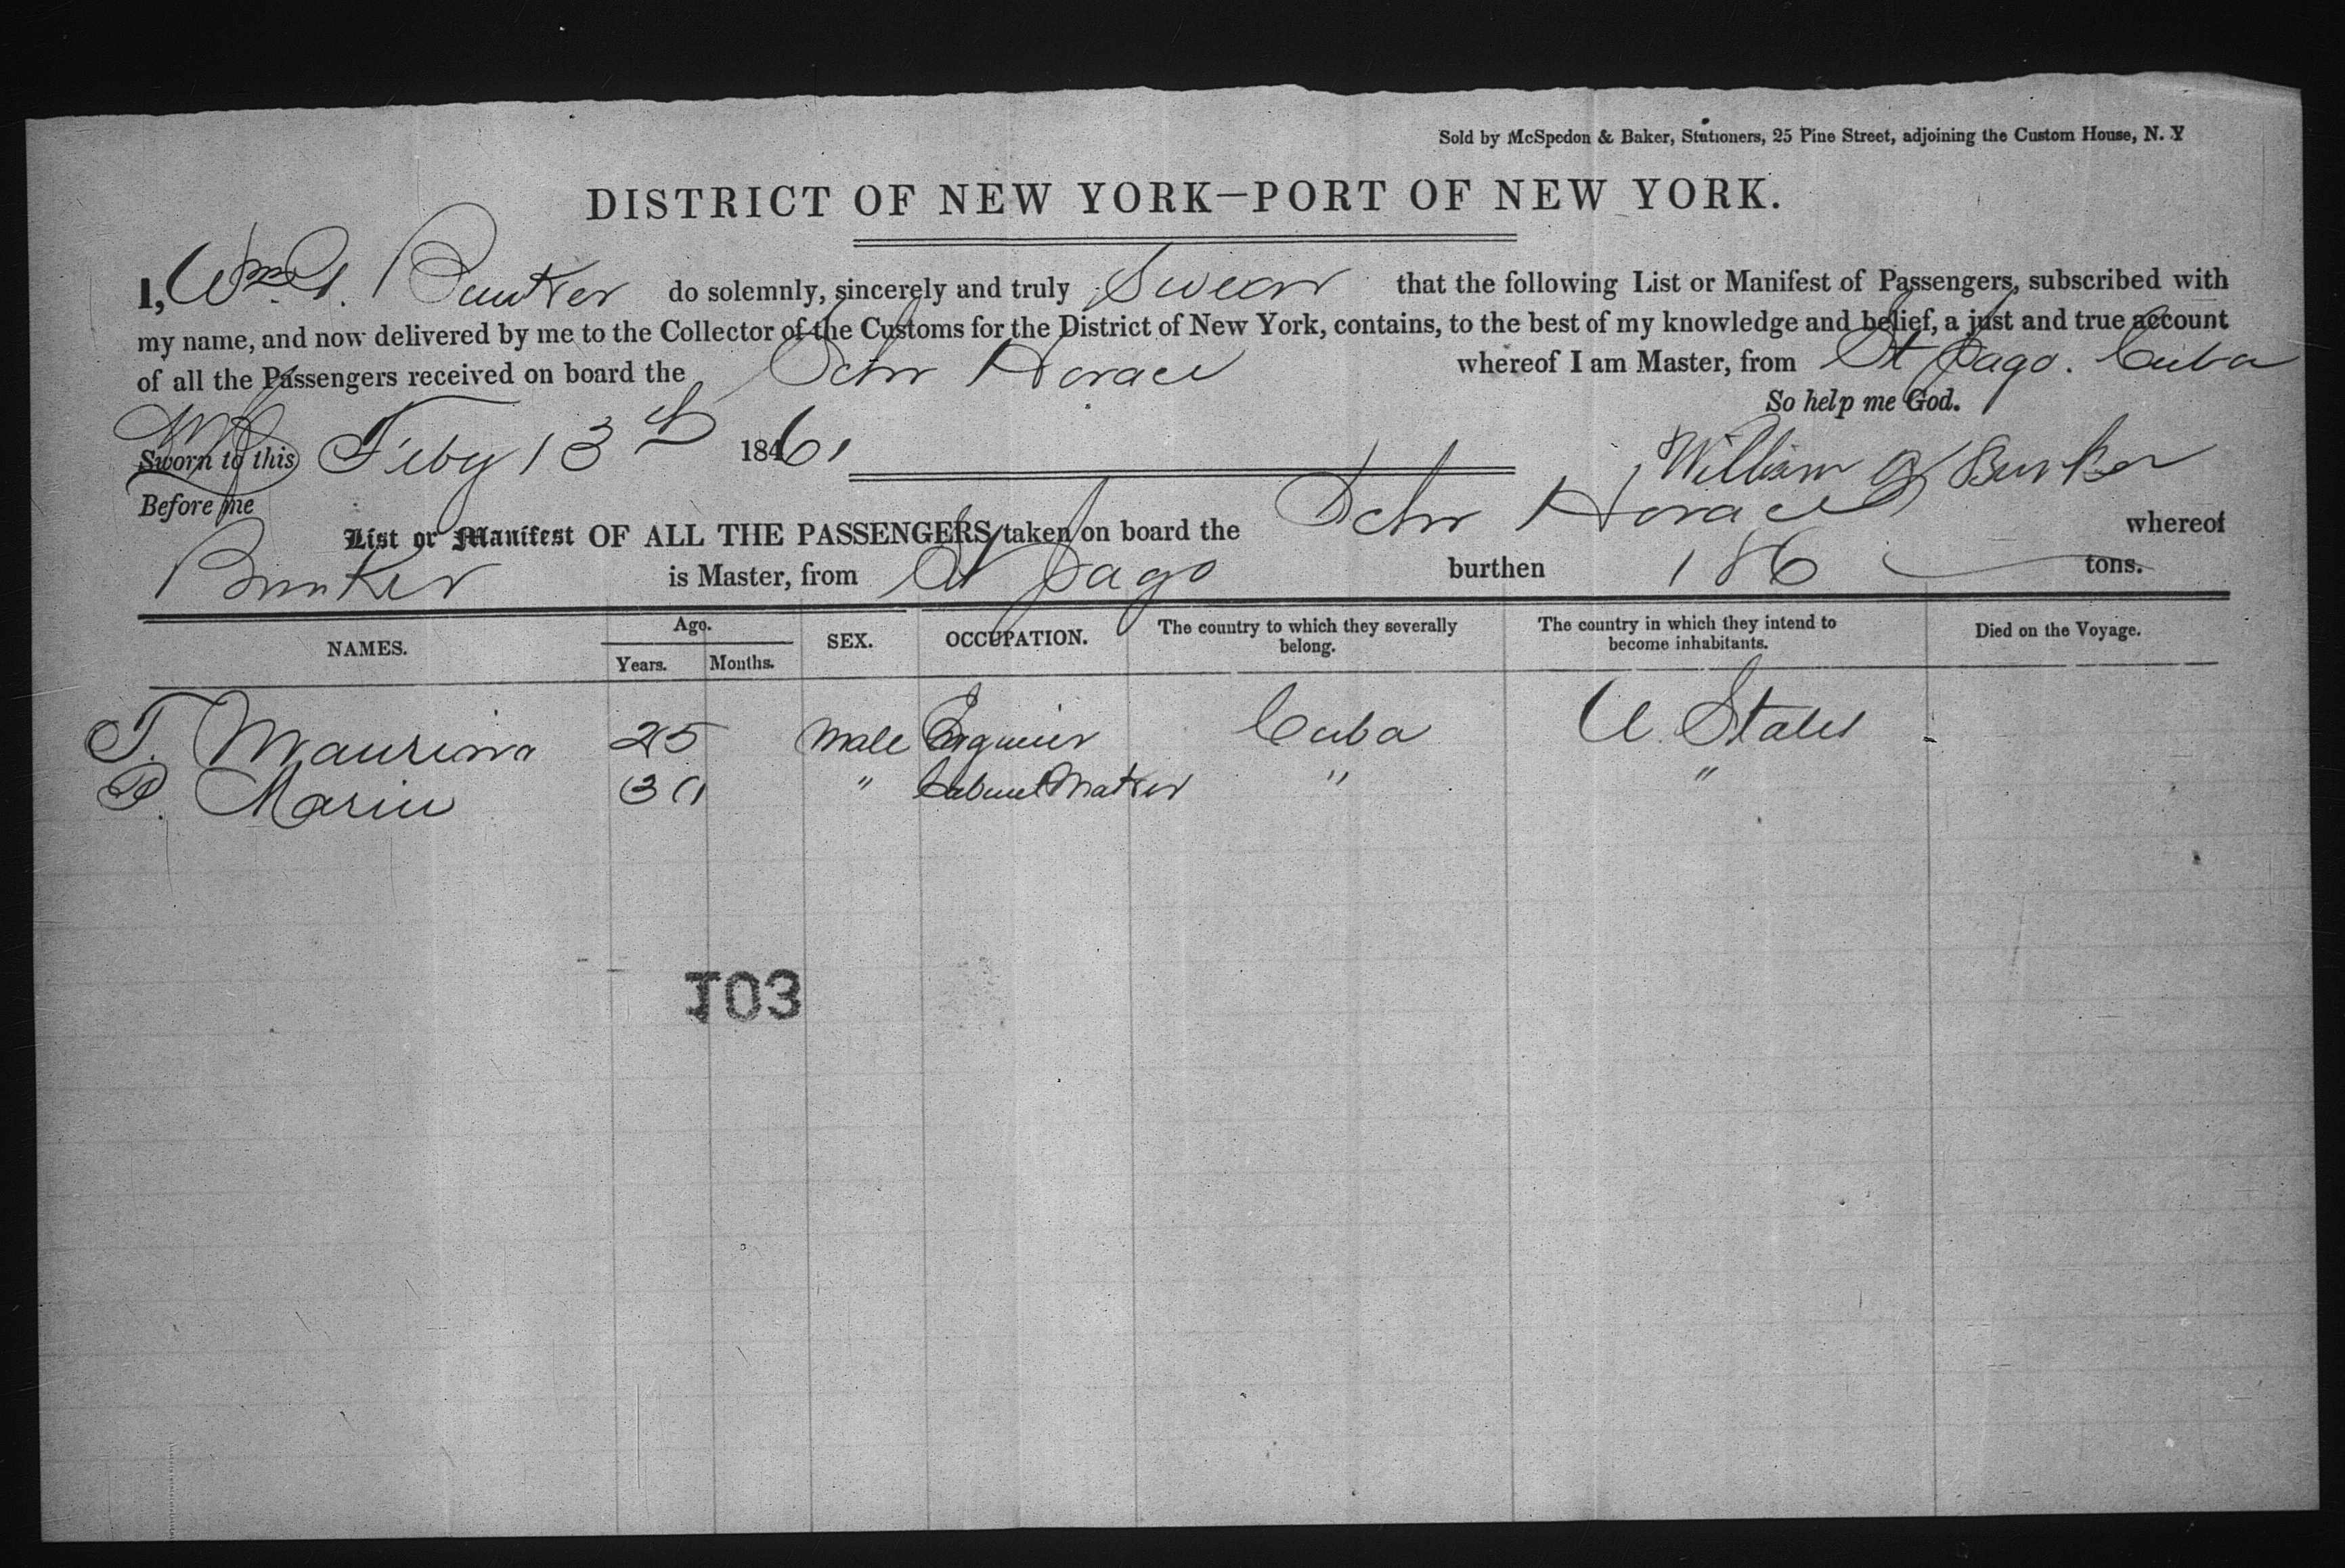 Sold by McSpedon & Baker, Stationers, 25 Pine Street, adjoining the Custom House, N. Y
DISTRICT OF NEW YORK—PORT OF NEW YORK.
I, Wm G. Bunker do solemnly, sincerely and truly Swear that the following List or Manifest of Passengers, subscribed with
my name, and now delivered by me to the Collector of the Customs for the District of New York, contains, to the best of my knowledge and belief, a just and true account
of all the Passengers received on board the Schr Horace whereof I am Master, from St Jago. Cuba
So help me God.
Sworn to this Feby 13th 1861
William G Bunker
Before me
List or Manifest OF ALL THE PASSENGERS taken on board the Schr Horace whereof
Bunker is Master, from St Jago burthen 186 tons.
NAMES. Age. Years. Months. SEX. OCCUPATION. The country to which they severally belong. The country in which they intend to become inhabitants. Died on the Voyage.
T. Maurina 25 Male Enginier Cuba U. States
P. Marin 30 " Cabinet Maker " "
103